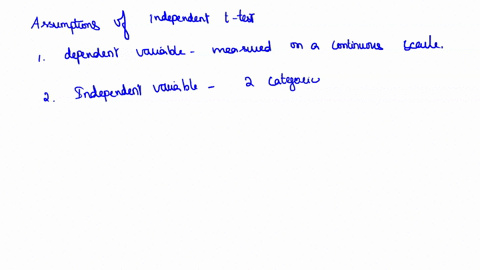 Assumptions of independent t-test
1. dependent variable - measured on a continuous scale.
2. Independent variable - 2 categoric